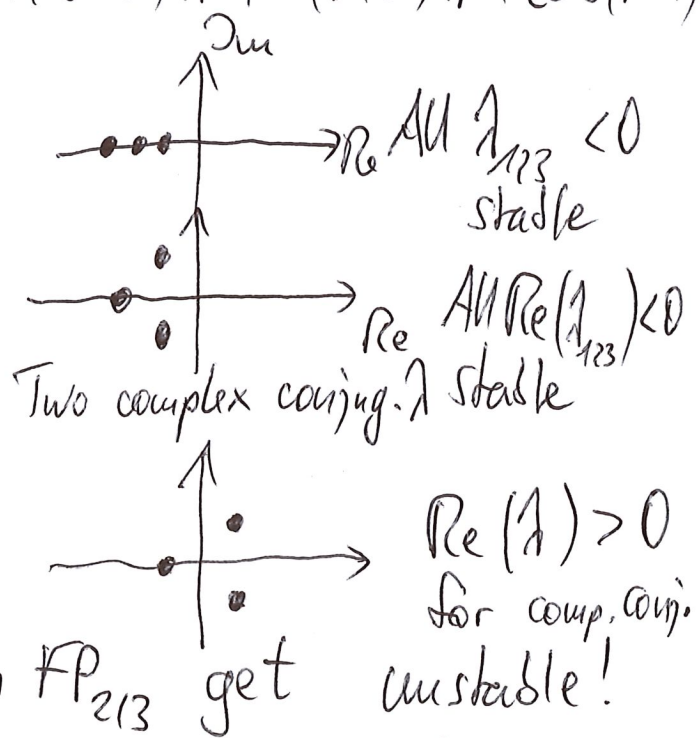 Im
Re All λ₁₂₃ <0
stable
Re All Re(λ₁₂₃)<0
Two complex conjug. λ stable
Re(λ)>0
for comp. conj.
FP₂/₃ get unstable!